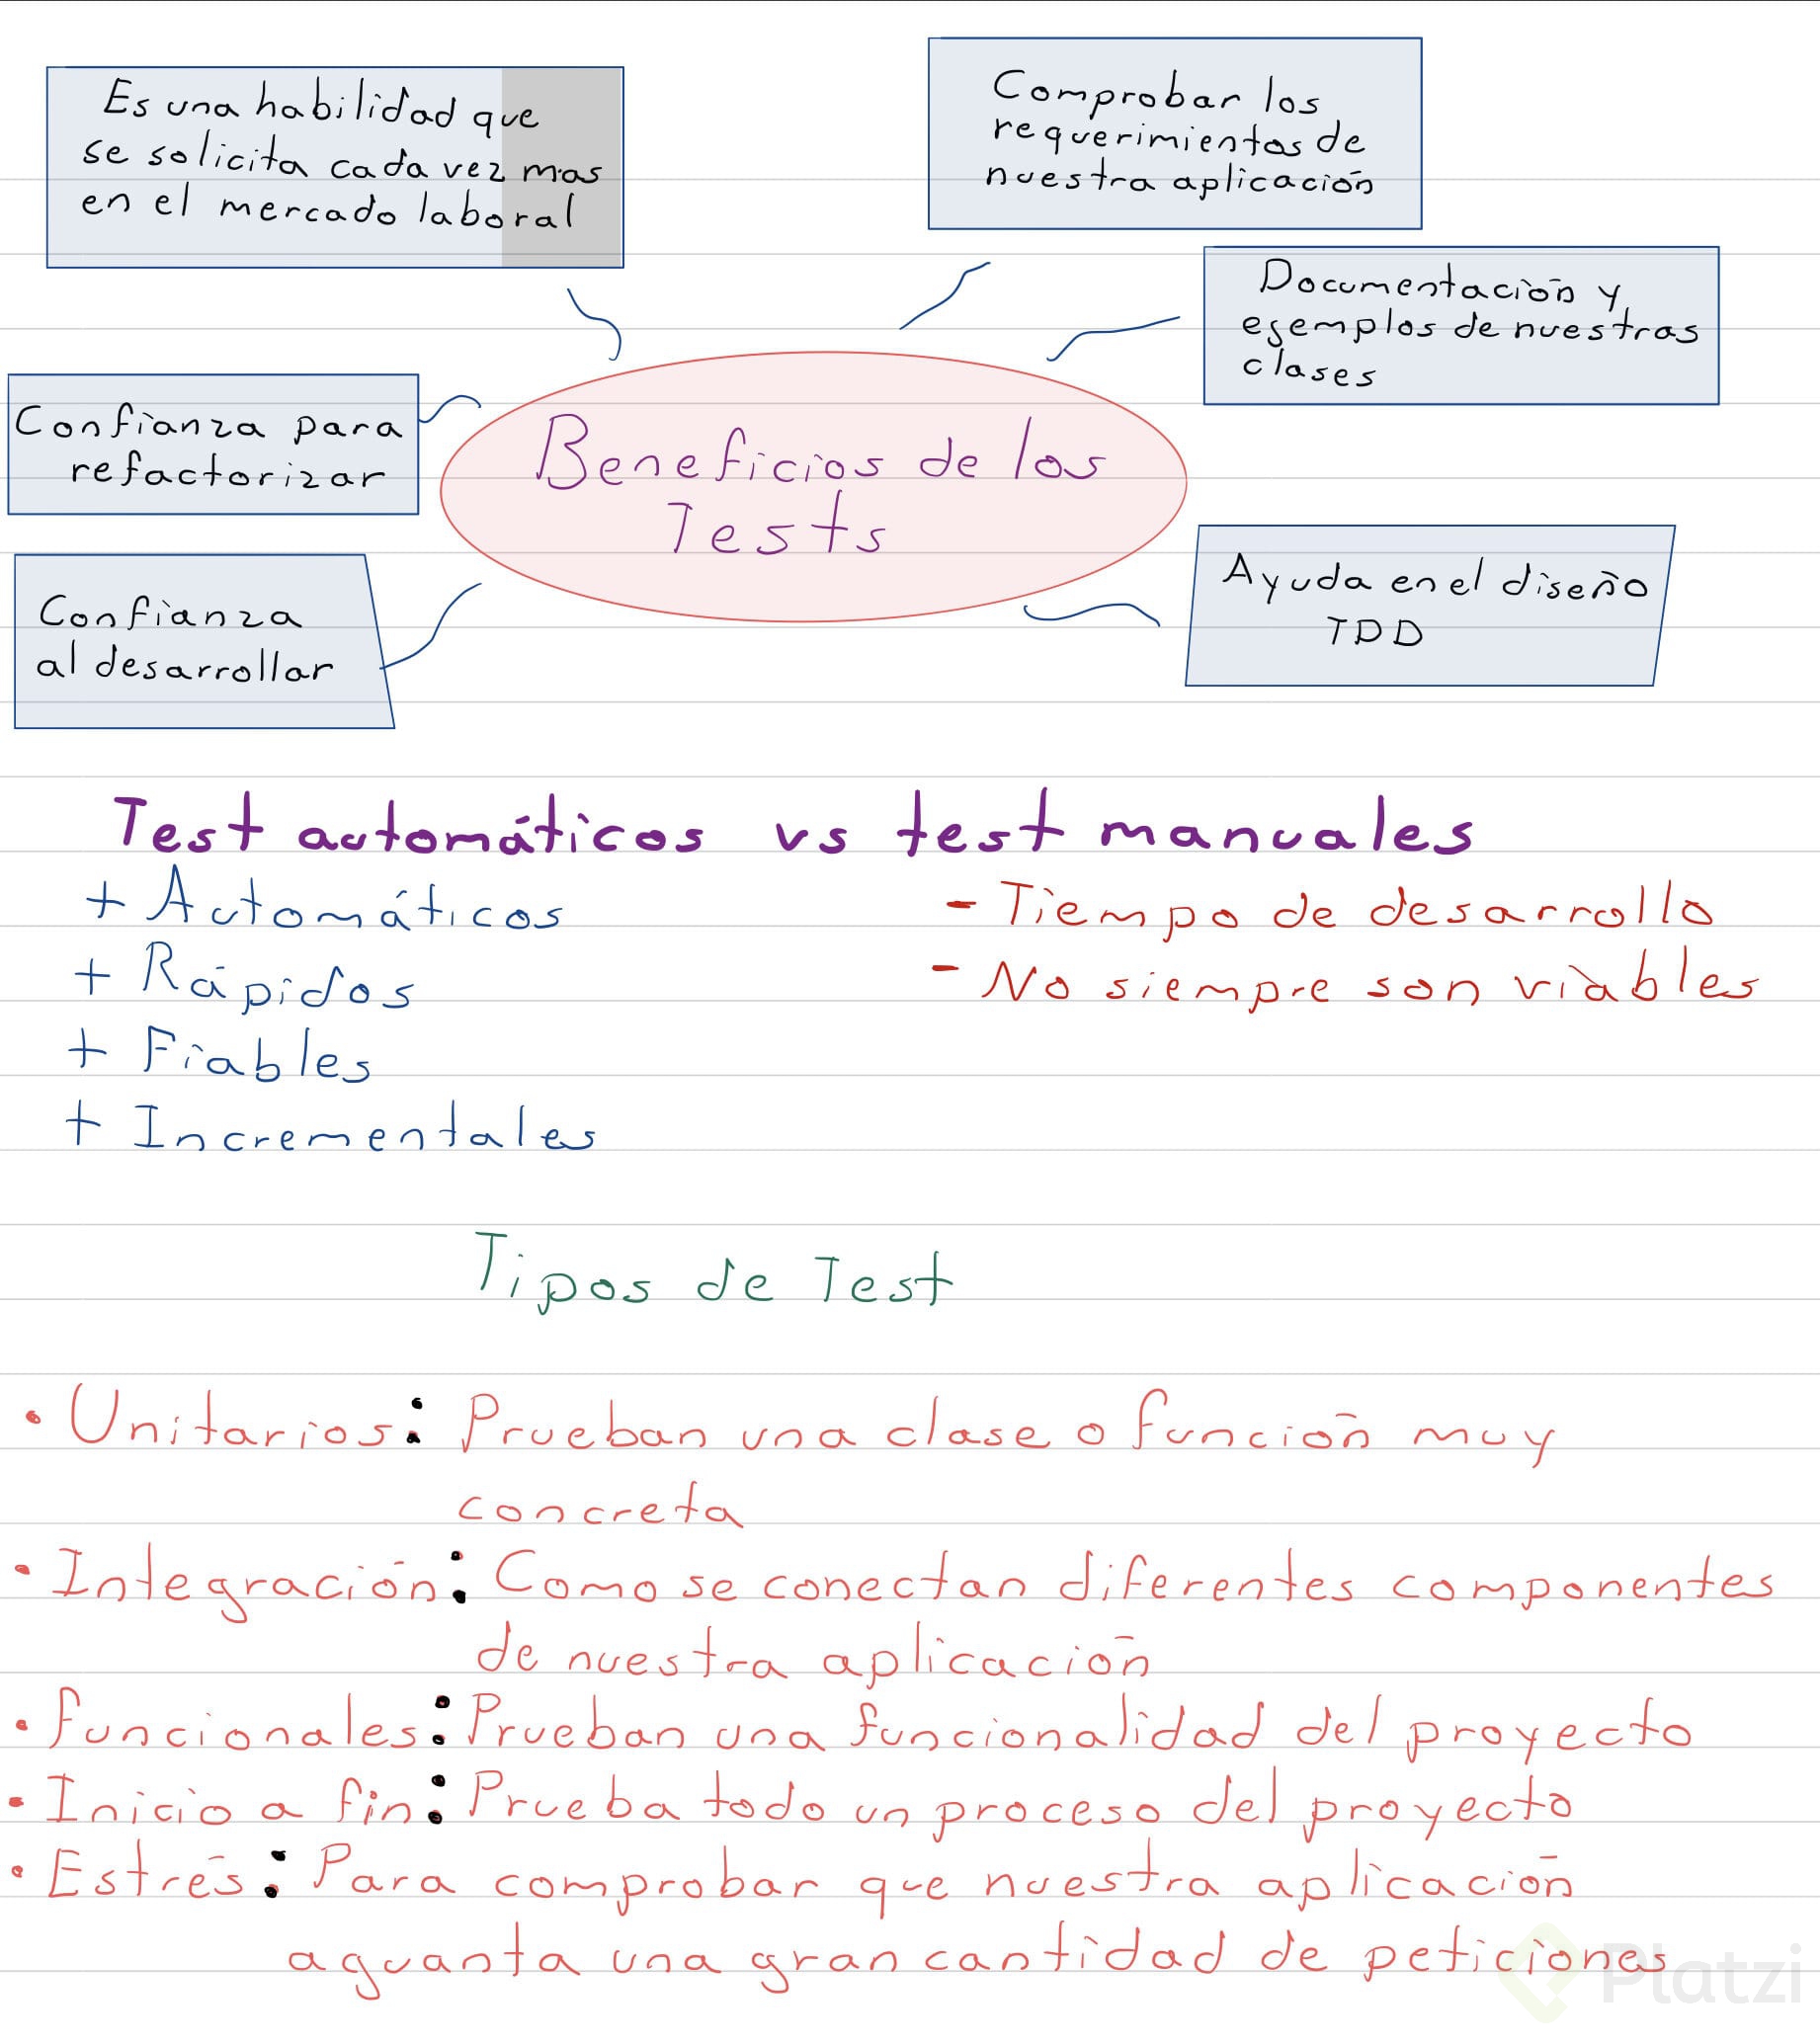 Es una habilidad que
se solicita cada vez mas
en el mercado laboral
Comprobar los
requerimientos de
nuestra aplicación
Documentación y
ejemplos de nuestras
clases
Confianza para
refactorizar
Beneficios de los
Tests
Confianza
al desarrollar
Ayuda en el diseño
TDD
Test automáticos vs test manuales
+ Automáticos
- Tiempo de desarrollo
+ Rápidos
- No siempre son viables
+ Fiables
+ Incrementales
Tipos de Test
• Unitarios: Prueban una clase o función muy
concreta
• Integración: Como se conectan diferentes componentes
de nuestra aplicación
• Funcionales: Prueban una funcionalidad del proyecto
• Inicio a fin: Prueba todo un proceso del proyecto
• Estrés: Para comprobar que nuestra aplicación
aguanta una gran cantidad de peticiones
Platzi